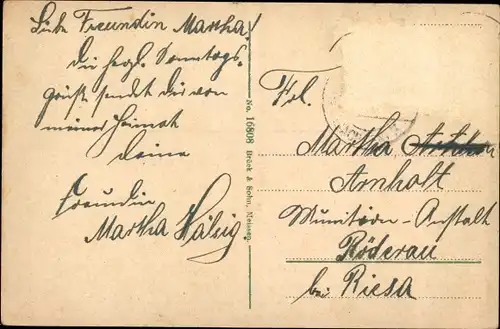 Liebe Freundin Martha!
Die herzl. Sonntags-
grüße sendet dir von
meiner Heimat
deine
Freundin
Martha
No. 16808 Brück & Sohn, Meissen.
Frl.
Martha
Arnholt
Munition-Anstalt
Röderau
bei Riesa